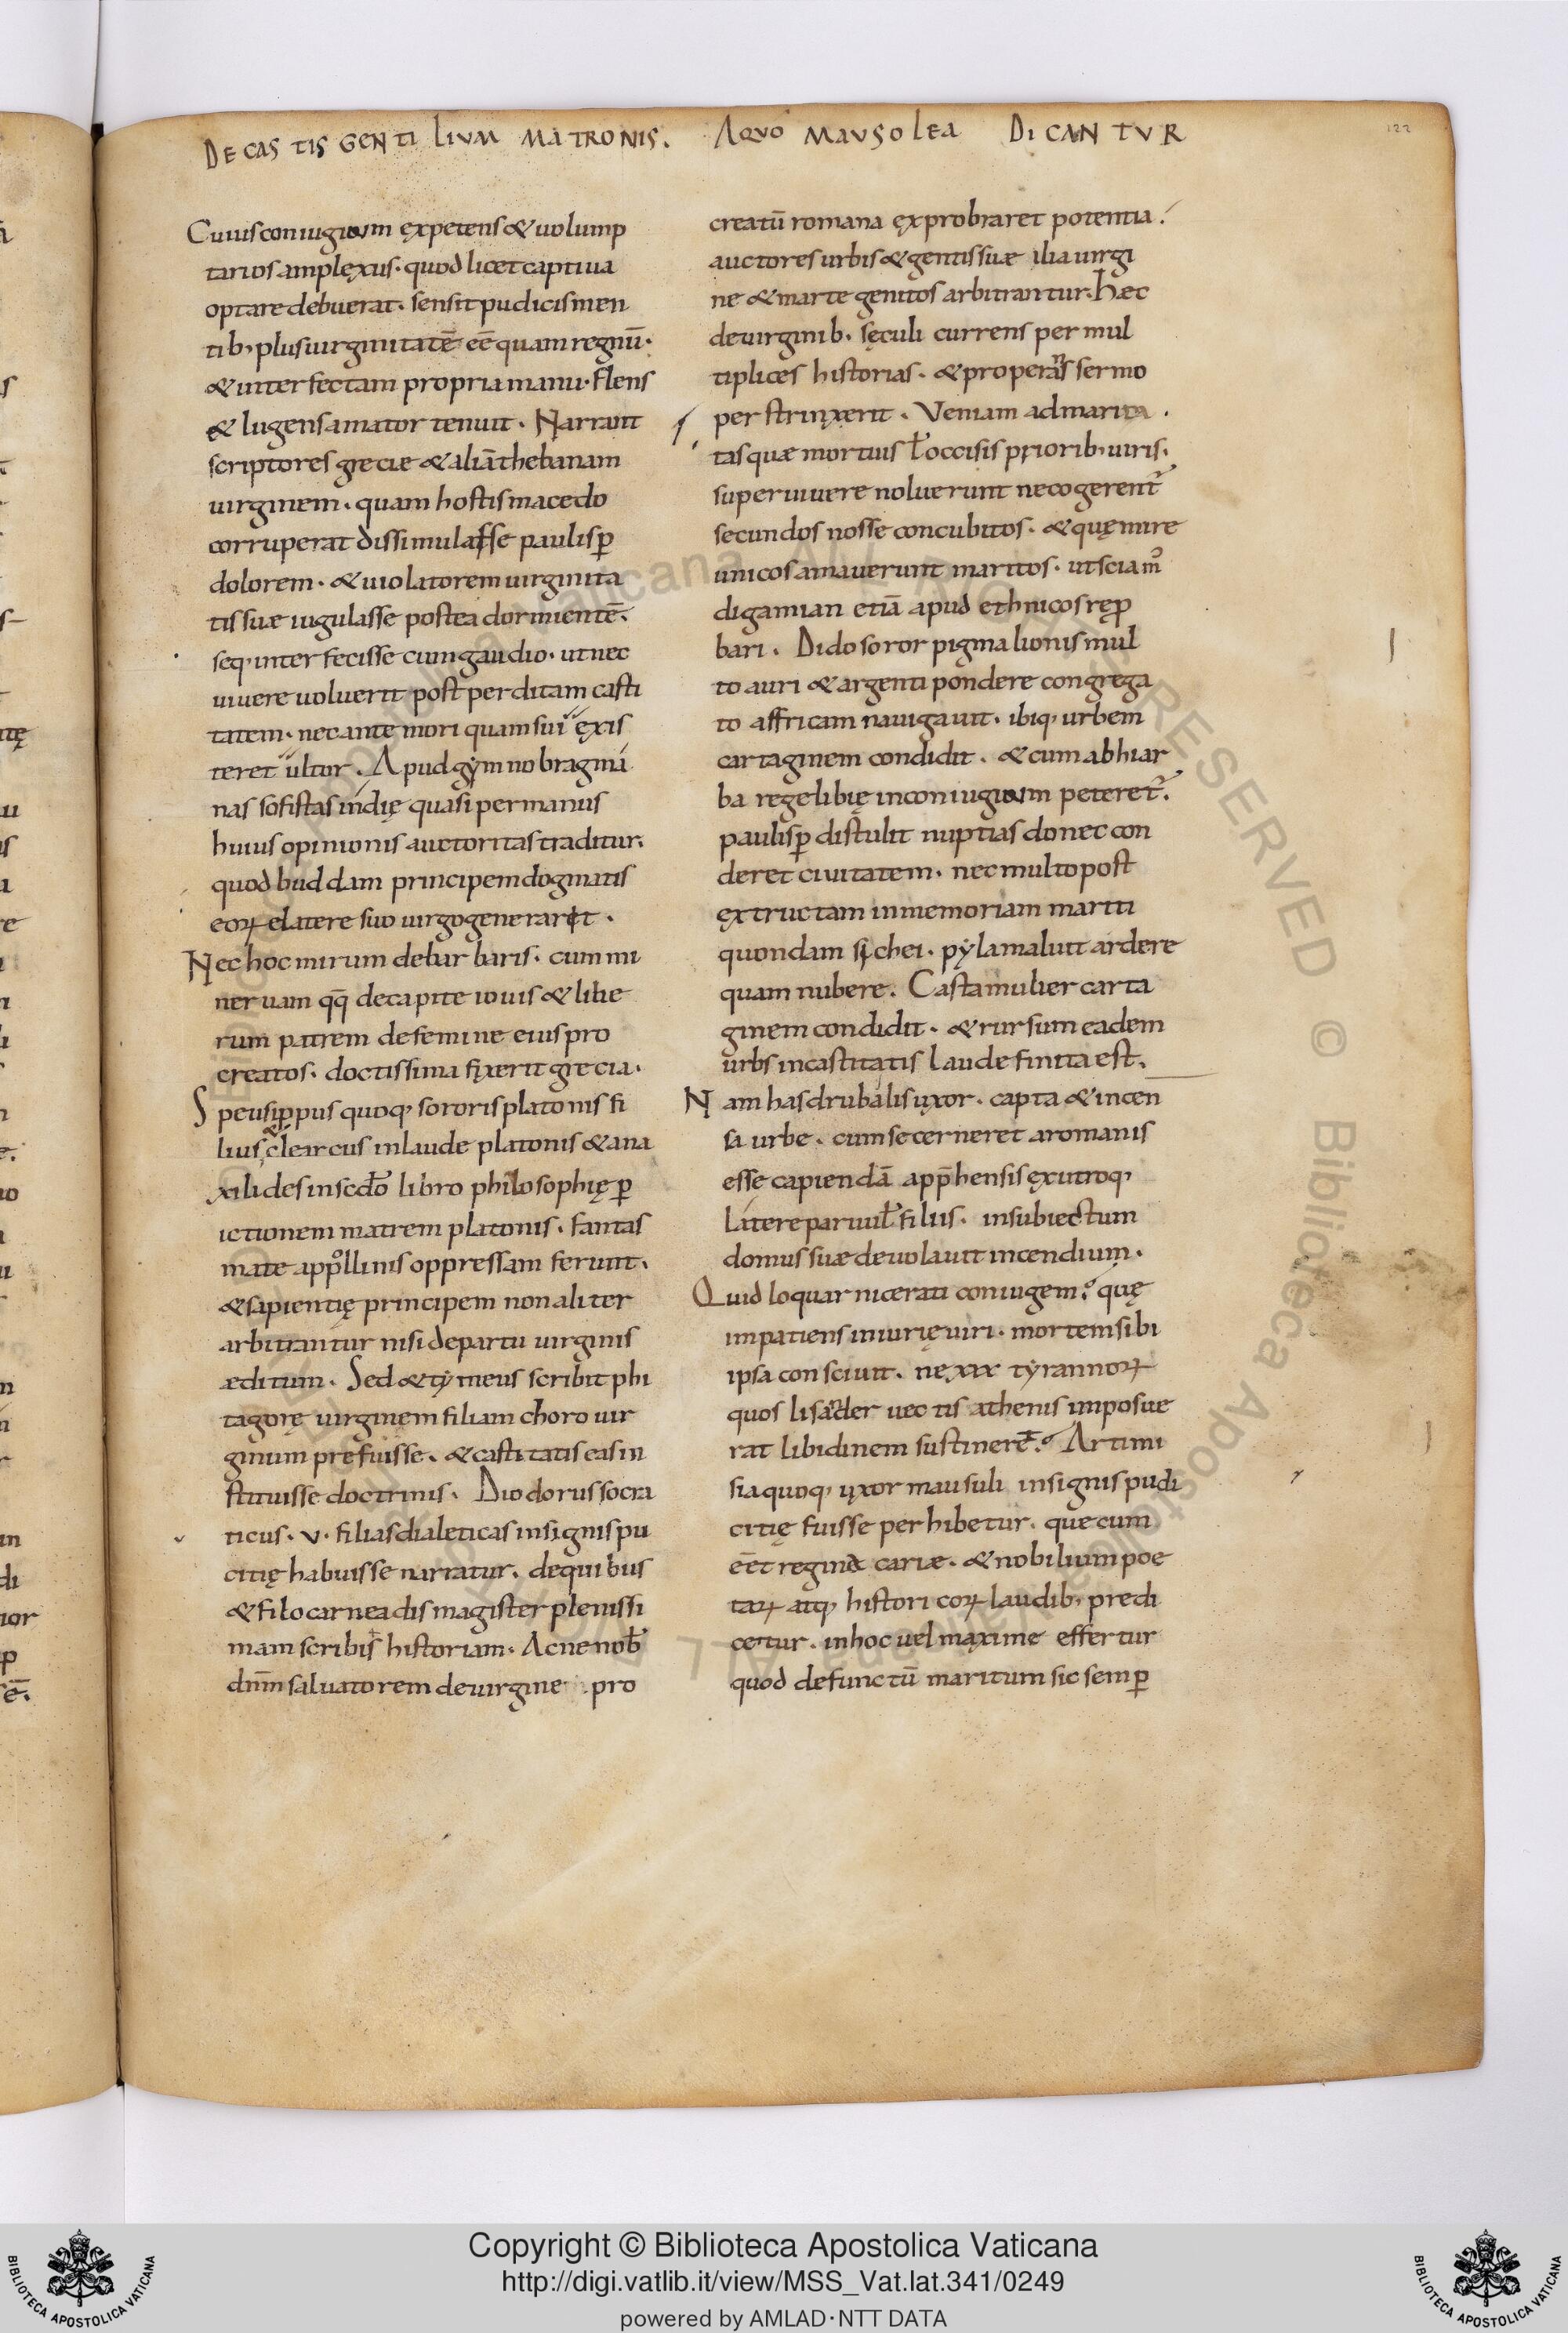 DE CASTIS GENTILIUM MATRONIS. AQVO MAVSOLEA DICANTVR
122
Cuius coniugium expetens & uolump
tarios amplęxus· quod licet captiua
optare debuerat· sensit pudicis men
tib; plus uirginitatē eē quam regnū·
& interfectam propria manu· flens
& lugens amator tenuit· Narrant
scriptores grecie & aliā thebanam
uirginem· quam hostis macedo
corruperat dissimulasse paulisꝑ
dolorem· & uiolatorem uirginita
tis suæ iugulasse postea dormientē·
seq; interfecisse cum gaudio· ut nec
uiuere uoluerit post perditam casti
tatem· nec ante mori quam sui ęxis
teret ultor· Apud gymnobragma
nas sofistas indię quasi per manus
huius opinionis auctoritas traditur·
quod buddam principem dogmatis
eoꝝ elatere suo uirgo generaret·
Nec hoc mirum debarbaris· cum mi
neruam qq̄ decapite iouis & libe
rum patrem defemine eius pro
creatos· doctissima fixerit grecia·
Speusippus quoq; sororis platonis fi
lius & clearcus inlaude platonis & ana
xilides insecd̄o libro philosophię ꝑ
ictionem matrem platonis· fantas
mate appollinis oppressam ferunt·
& sapientię principem non aliter
arbitrantur nisi departu uirginis
æditum· Sed & tymeus scribit phi
tagorę uirginem filiam choro uir
ginum prefuisse· & castitatis eas in
stituisse doctrinis· Diodorus socra
ticus· v· filias dialeticas insignis pu
citię habuisse narratur· dequibus
& filo carneadis magister plenissi
mam scribit historiam· Acne nob̄
dn̄m saluatorem deuirgine pro
creatū romana ęxprobraret potentia·
auctores urbis & gentis suæ ilia uirgi
ne & marte genitos arbitrantur· Hæc
deuirginib; sęculi currens per mul
tiplices historias· & properans sermo
perstrinxerit· Veniam ad marita
tas quæ mortuis ł occisis priorib; uiris·
superuiuere noluerunt ne cogerent̃
secundos nosse concubitos· & quę mire
unicos amauerunt maritos· ut sciam᷒
digamian etiā apud ethnicos rep̱
bari· Dido soror pigmalionis mul
to auri & argenti pondere congrega
to affricam nauigauit· ibiq; urbem
cartaginem condidit· & cum ab hiar
ba rege libię inconiugium peteret̃·
paulisꝑ distulit nuptias donec con
deret ciuitatem· nec multo post
ęxtructam inmemoriam mariti
quondam sichei· pyla maluit ardere
quam nubere· Casta mulier carta
ginem condidit· & rursum eadem
urbs incastitatis laude finita est·
Nam hasdrubalis uxor· capta & incen
sa urbe· cum se cerneret aromanis
esse capiendā app̄hensis ęxutroq;
latere paruul̄ filiis· insubiectum
domus suæ deuolauit incendium·
Quid loquar nicerati coniugem? quę
impatiens iniurię uiri· mortem sibi
ipsa consciuit· ne xxx tyrannoꝝ
quos lisander uectis athenis imposue
rat libidinem sustineret? Artimi
sia quoq; uxor mausuli insignis pudi
citię fuisse perhibetur· que cum
eēt regina cariæ· & nobilium poe
taꝝ atq; historicoꝝ laudib; predi
cetur· inhoc uel maxime effertur
quod defunctū maritum sic semꝑ
Copyright © Biblioteca Apostolica Vaticana
http://digi.vatlib.it/view/MSS_Vat.lat.341/0249
powered by AMLAD·NTT DATA
BIBLIOTECA APOSTOLICA VATICANA
BIBLIOTECA APOSTOLICA VATICANA